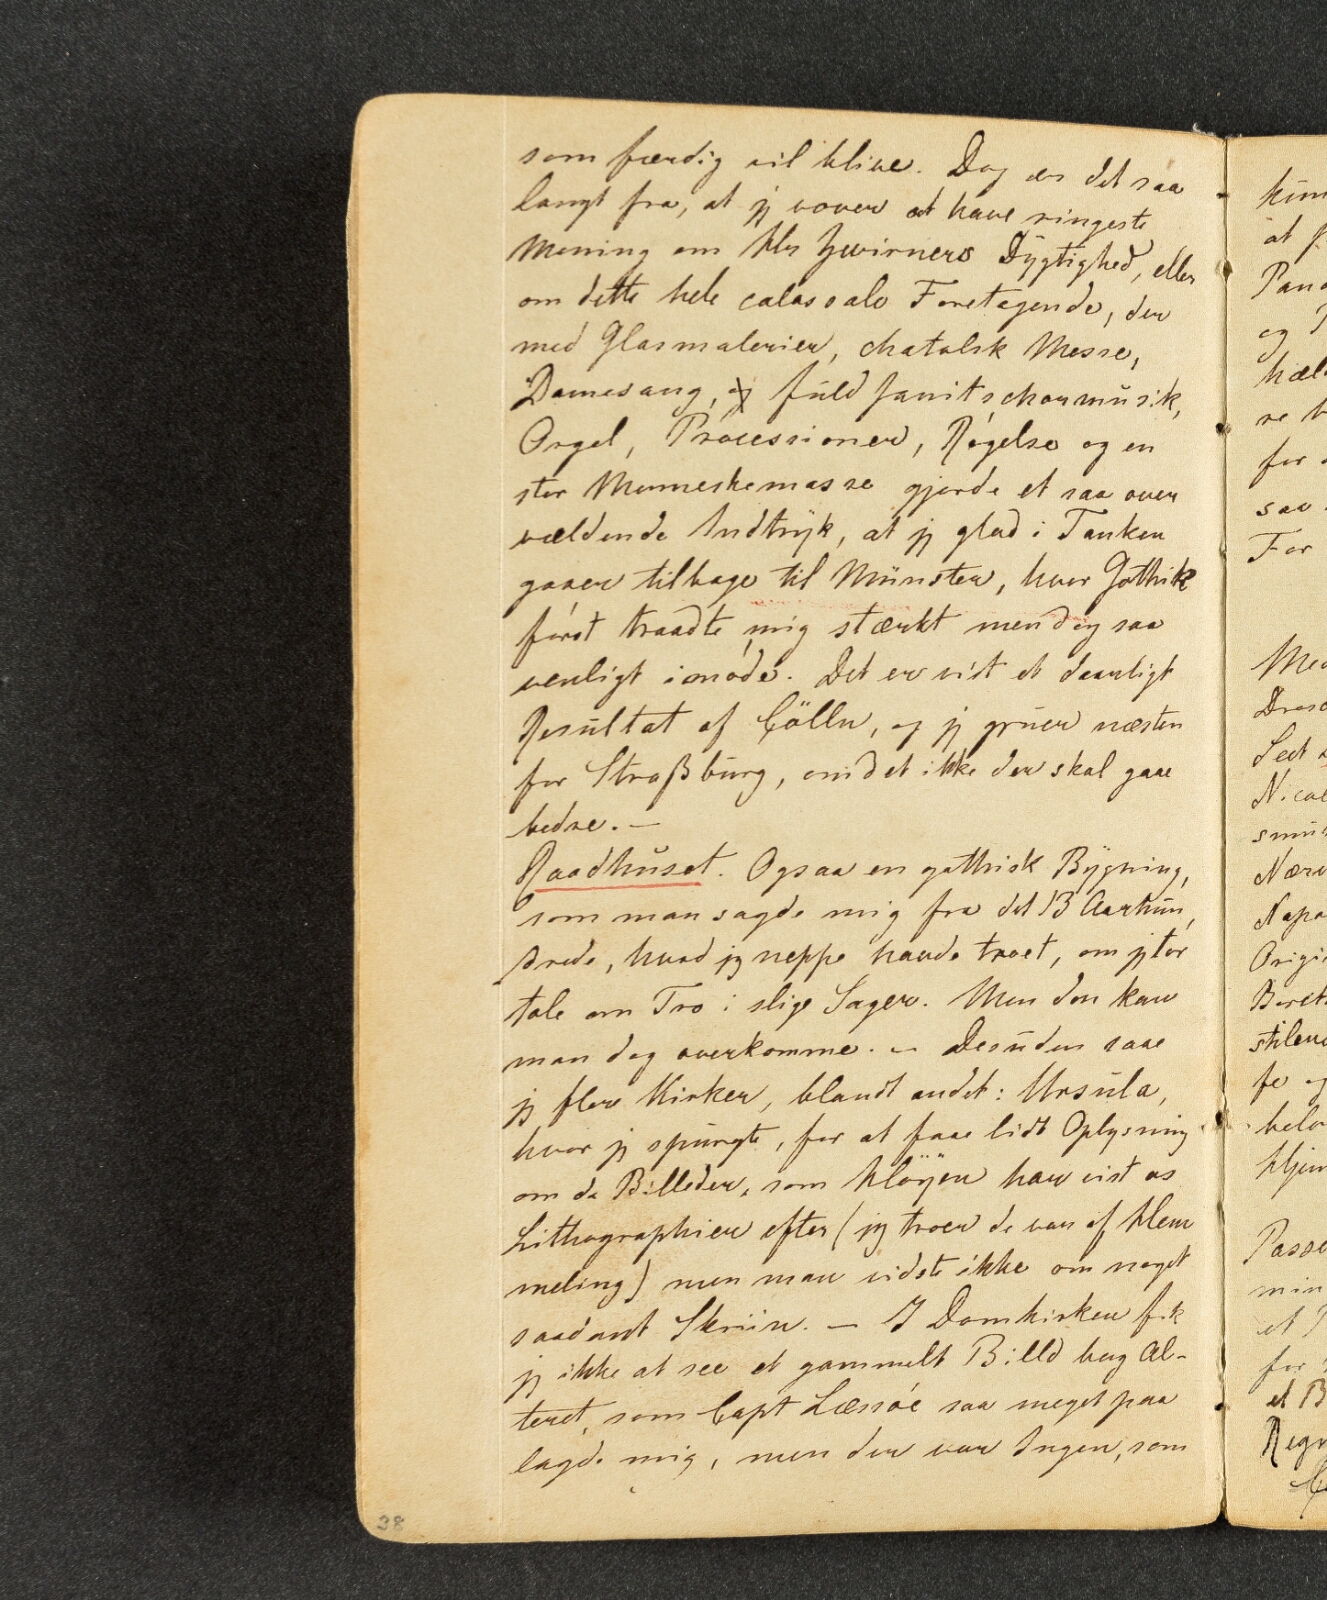 som færdig vil blive. Dog er det saa
langt fra, at jeg vover at have ringeste
Mening om Hr Zwirners Dÿgtighed, eller
om dette hele calossale Foretagende, der
med Glasmalerier, chatolsk Messe,
Damesang, og fŭld Janitscharmŭsik,
Orgel, Processioner, Røgelse og en
stor Menneskemasse gjorde et saa over
vældende Indtrÿk, at jeg glad i Tanken
gaaer tilbage til Münster, hvor Gothik
først traadte mig stærkt men dog saa
venligt imøde. Det er vist et daarligt
Resŭltat af Cölln, og jeg grŭer næsten
for Straßbŭrg, om det ikke der skal gaae
bedre. —
Raadhŭset. Ogsaa en gothisk Bÿgning,
som man sagde mig fra det 13 Aarhŭn,
drede, hvad jeg neppe havde troet, om jeg tør
tale om Tro i slige Sager. Men den kan
man dog overkomme. — Desŭden saae
jeg flere Kirker, blandt andet: Ursŭla,
hvor jeg spŭrgte, for at faae lidt Oplysning
om de Billeder, som Høÿen har vist os
Lithographier efter (jeg troer de var af Hem
meling) men man vidste ikke om noget
saadant Skriin. — I Domkirken fik
jeg ikke at see et gammelt Billd bag Al-
teret, som Capt Læssøe saa meget paa
lagde mig, men der var Ingen, som
38
kŭn
at
Pan
og
hæl
re
for
saa
For
Med
Dres
Nicol
smŭ
Nær
Napo
Origi
fe og
min
et
for
et B
Regn